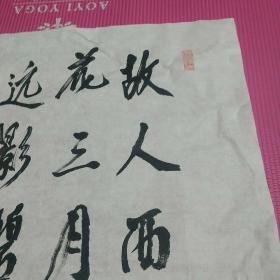 故人西
花三月
远影碧
AOYI YOGA